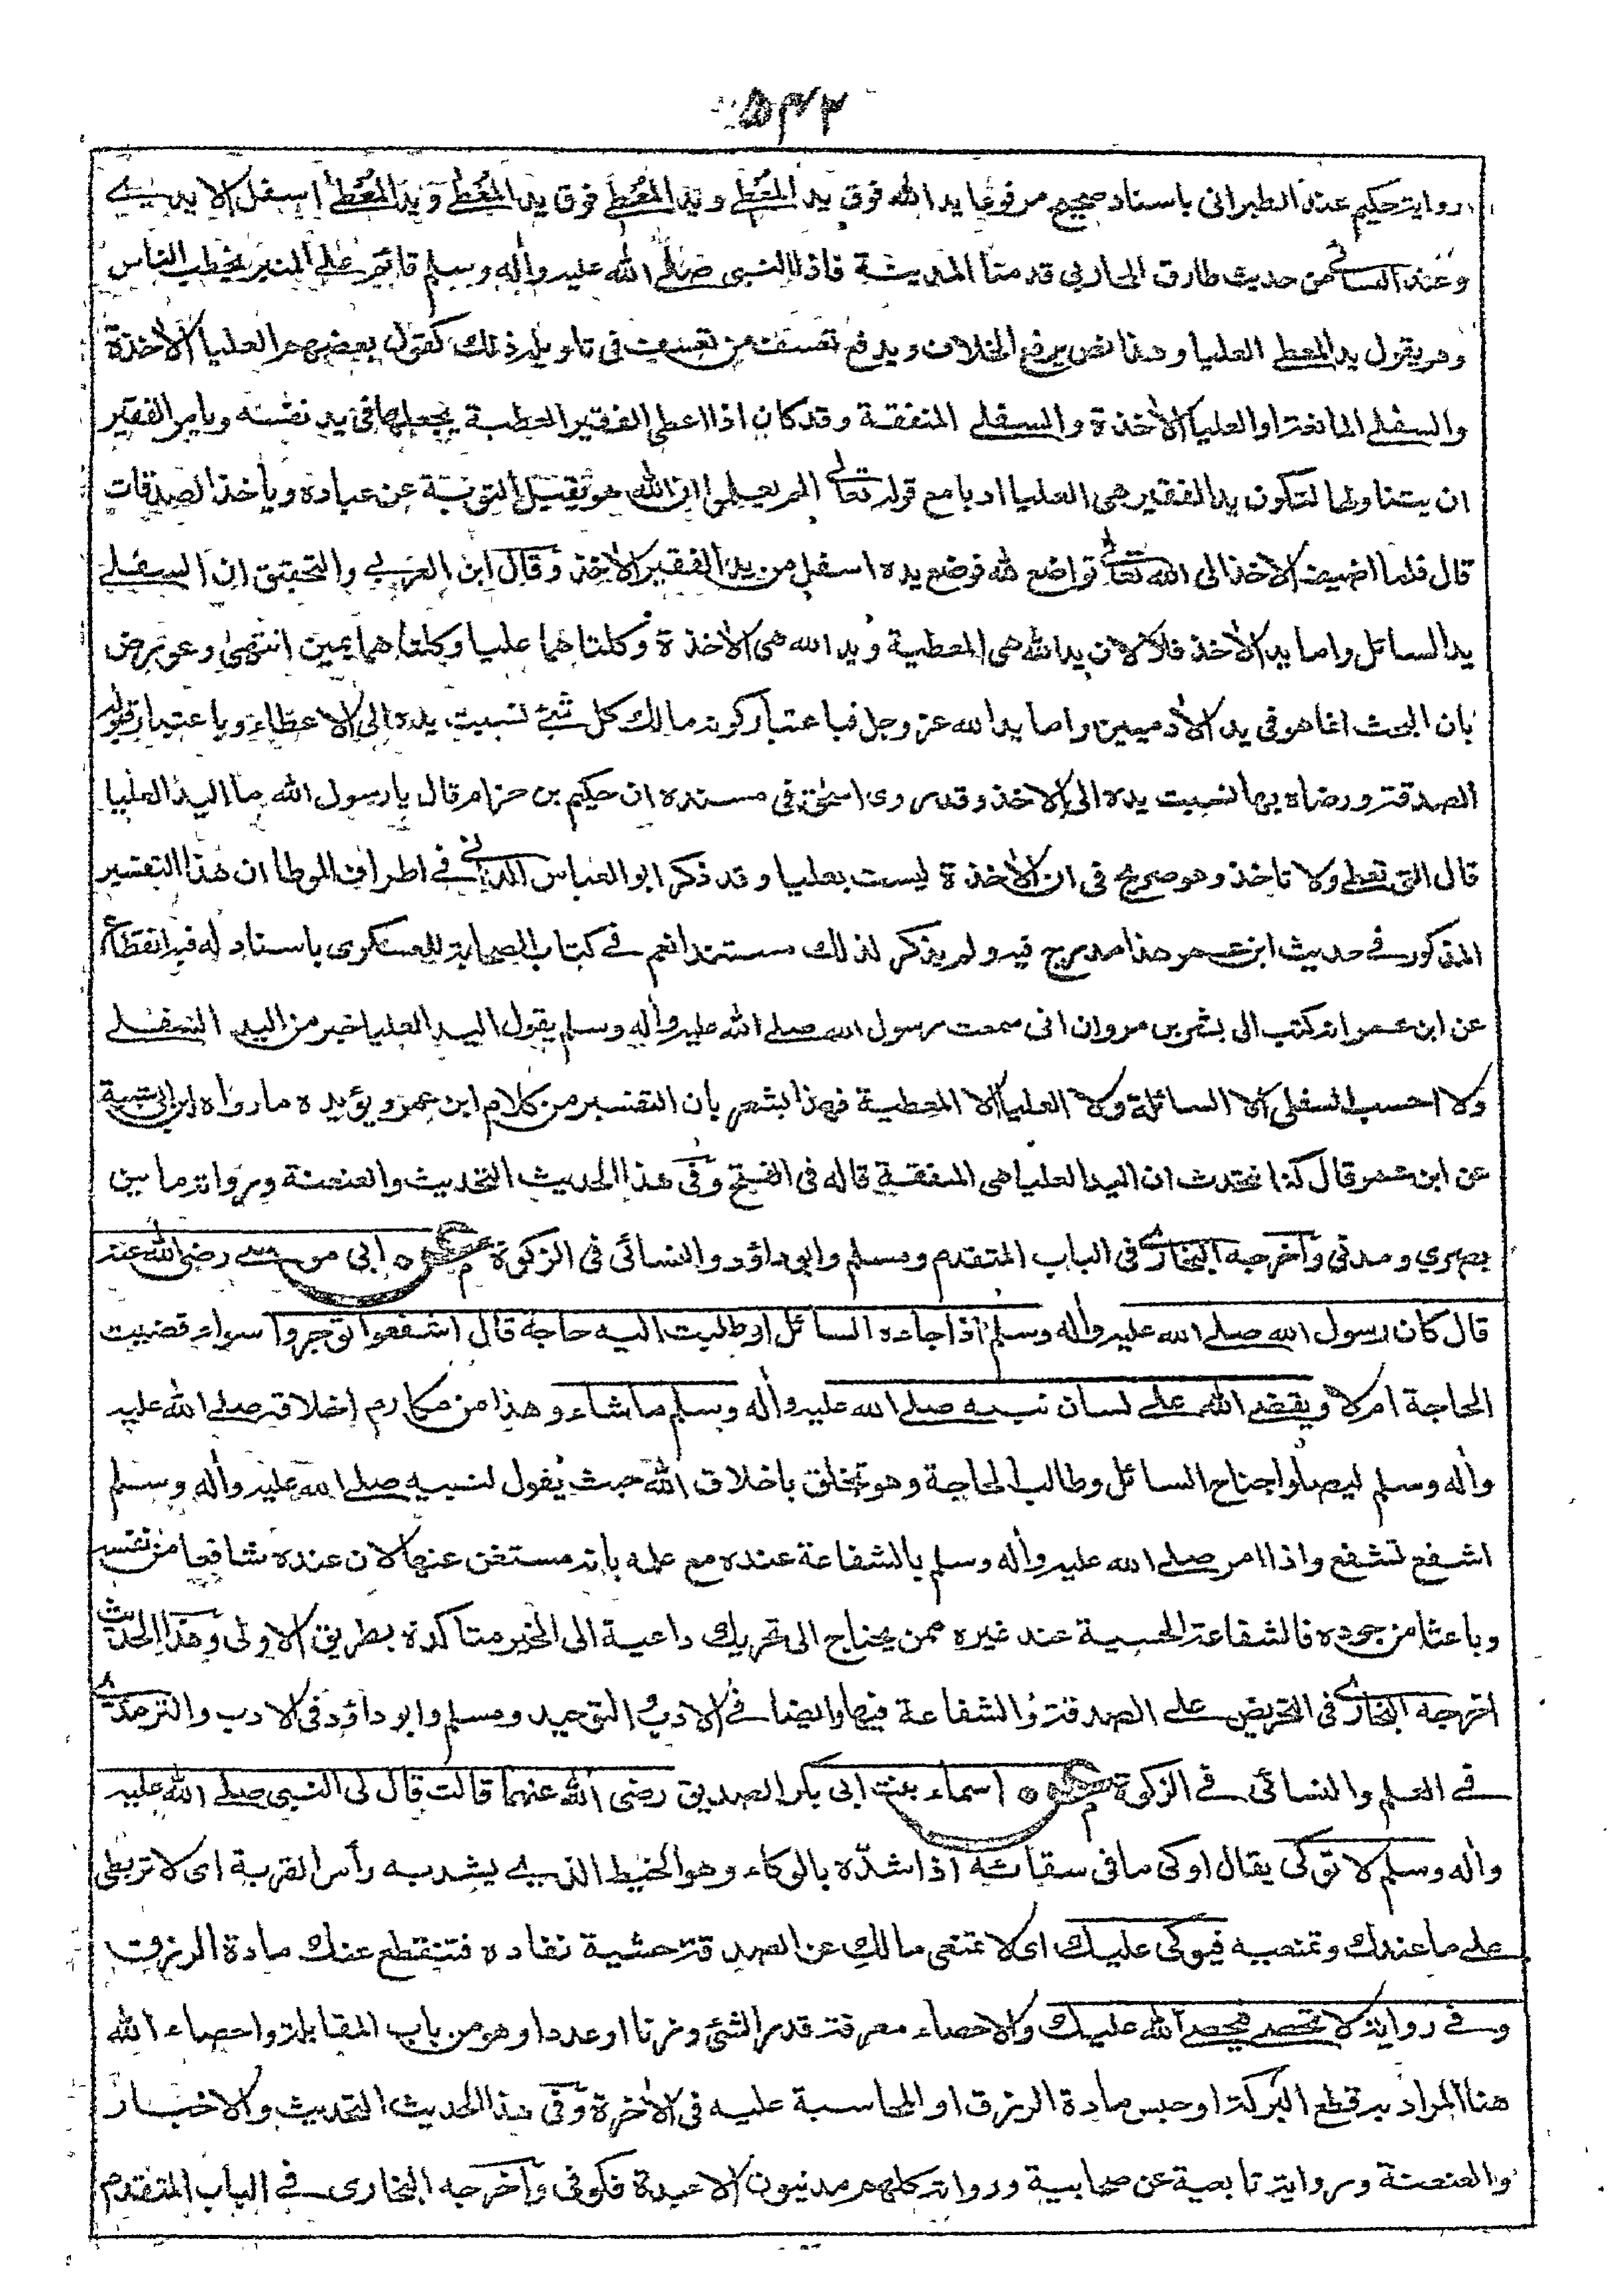 ٥٣٢
رواية حكيم عند الطبرانى باسناد صحيح مرفوعا يد الله فوق يد المُعْطِى ويد المُعْطِى فوق يد المُعْطَى ويد المُعْطَى اسفل الايدى
وعند النسائى من حديث طارق المحاربى قدمنا المدينة فاذا النبى صلى الله عليه وأله وسلم قائم على المنبر يخطب الناس
وهو يقول يد المعطى العليا وهذا نص يرفع الخلاف ويدفع تعسف من تعسف فى تاويل ذلك كقول بعضهم العليا الأخذة
والسفلى المانعة او العليا الأخذة والسفلى المنفقة وقد كان اذا اعطى الفقير العطية يجعلها فى يد نفسه ويامر الفقير
ان يتناولها لتكون يد الفقير هى العليا ادبا مع قوله تعالى الم يعلموا ان الله هو يقبل التوبة عن عباده ويأخذ الصدقات
قال فلما اضيف الاخذ الى الله تعالى تواضع لله فوضع يده اسفل من يد الفقير الأخذ وقال ابن العربى والتحقيق ان السفلى
يد السائل واما يد الأخذ فلا لان يد الله هى المعطية ويد الله هى الأخذة وكلتاهما عليا وكلتاهما يمين انتهى وعورض
بان البحث انما هو فى يد الأدميين واما يد الله عز وجل فباعتبار كونه مالك كل شئ نسبت يده الى الاعطاء وباعتبار قبوله
الصدقة ورضاه بها نسبت يده الى الاخذ وقد روى اسحٰق فى مسنده ان حكيم بن حزام قال يا رسول الله ما اليد العليا
قال التى تعطى ولا تاخذ وهو صريح فى ان الأخذة ليست بعليا وقد ذكر ابو العباس الدانى فى اطراف الموطا ان هذا التفسير
المذكور فى حديث ابن عمر هذا مدرج فيه ولم يذكر لذلك مستندا نعم فى كتاب الصحابة للعسكرى باسناد له فيه انقطاع
عن ابن عمر انه كتب الى بشر بن مروان انى سمعت رسول الله صلى الله عليه وأله وسلم يقول اليد العليا خير من اليد السفلى
ولا احسب السفلى الا السائلة ولا العليا الا المعطية فهذا يشعر بان التفسير من كلام ابن عمر ويؤيده ما رواه ابن ابى شيبة
عن ابن عمر قال كنا نتحدث ان اليد العليا هى المنفقة قاله فى الفتح وفى هذا الحديث التحديث والعنعنة ورواته ما بين
بصرى ومدنى وأخرجه البخارى فى الباب المتقدم ومسلم وابو داؤد والنسائى فى الزكوة عن ابى موسى رضى الله عنه
قال كان رسول الله صلى الله عليه وأله وسلم اذا جاءه السائل او طلبت اليه حاجة قال اشفعوا تؤجروا سواء قضيت
الحاجة ام لا ويقضى الله على لسان نبيه صلى الله عليه وأله وسلم ما شاء وهذا من مكارم اخلاقه صلى الله عليه
وأله وسلم ليصلوا جناح السائل وطالب الحاجة وهو تخلق باخلاق الله حيث يقول لنبيه صلى الله عليه وأله وسلم
اشفع تشفع واذا امر صلى الله عليه وأله وسلم بالشفاعة عنده مع علمه بانه مستغن عنها لان عنده شافعا من نفسه
وباعثا من جوده فالشفاعة الحسية عند غيره ممن يحتاج الى تحريك داعية الى الخير متاكدة بطريق الاولى وهذا الحديث
اخرجه البخارى فى التحريض على الصدقة والشفاعة فيها وايضا فى الادب والتوحيد ومسلم وابو داؤد فى الادب والترمذى
فى العلم والنسائى فى الزكوة عن اسماء بنت ابى بكر الصديق رضى الله عنهما قالت قال لى النبى صلى الله عليه
وأله وسلم لا توكى يقال اوكى ما فى سقائه اذا شدّه بالوكاء وهو الخيط الذى يشد به رأس القربة اى لا تربطى
على ما عندك وتمنعيه فيوكى عليك اى لا تمنعى مالك عن الصدقة خشية نفاده فتنقطع عنك مادة الرزق
وفى رواية لا تحصى فيحصى الله عليك والاحصاء معرفة قدر الشئ وزنا او عددا وهو من باب المقابلة واحصاء الله
هنا المراد به قطع البركة او حبس مادة الرزق او المحاسبة عليه فى الأخرة وفى هذا الحديث التحديث والاخبار
والعنعنة ورواية تابعية عن صحابية ورواته كلهم مدنيون الا عبدة فكوفى وأخرجه البخارى فى الباب المتقدم